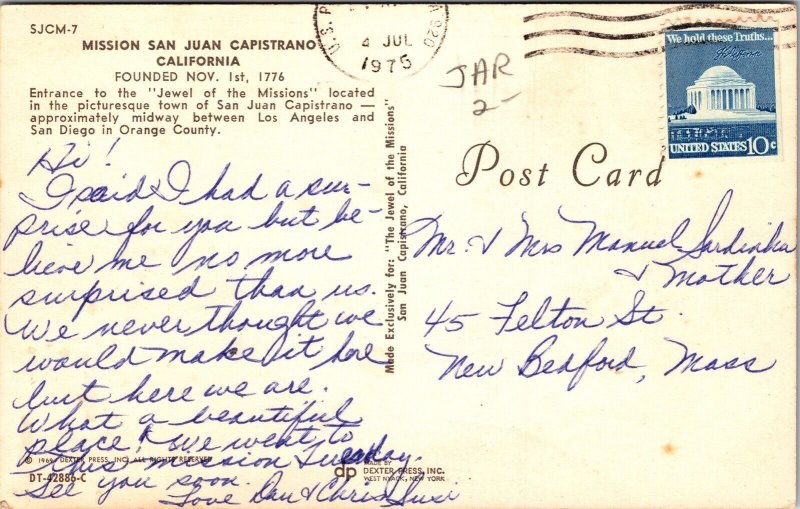 SJCM-7
MISSION SAN JUAN CAPISTRANO
CALIFORNIA
FOUNDED NOV. 1st, 1776
Entrance to the "Jewel of the Missions" located
in the picturesque town of San Juan Capistrano —
approximately midway between Los Angeles and
San Diego in Orange County.
Hi!
I said I had a sur-
prise for you but be-
lieve me no more
surprised than us.
We never thought we
would make it here
but here we are.
What a beautiful
place! We went to
this mission Tuesday.
See you soon.
Love Dan & Chris Susi
© 1969 DEXTER PRESS, INC. ALL RIGHTS RESERVED
DT-42886-C
dp
MADE BY
DEXTER PRESS, INC.
WEST NYACK, NEW YORK
Made Exclusively for: "The Jewel of the Missions"
San Juan Capistrano, California
U.S. P
920
2 JUL
1975
JAR
2-
We hold these Truths...
UNITED STATES 10c
Post Card
Mr. & Mrs Manuel Sardinha
& Mother
45 Felton St.
New Bedford, Mass